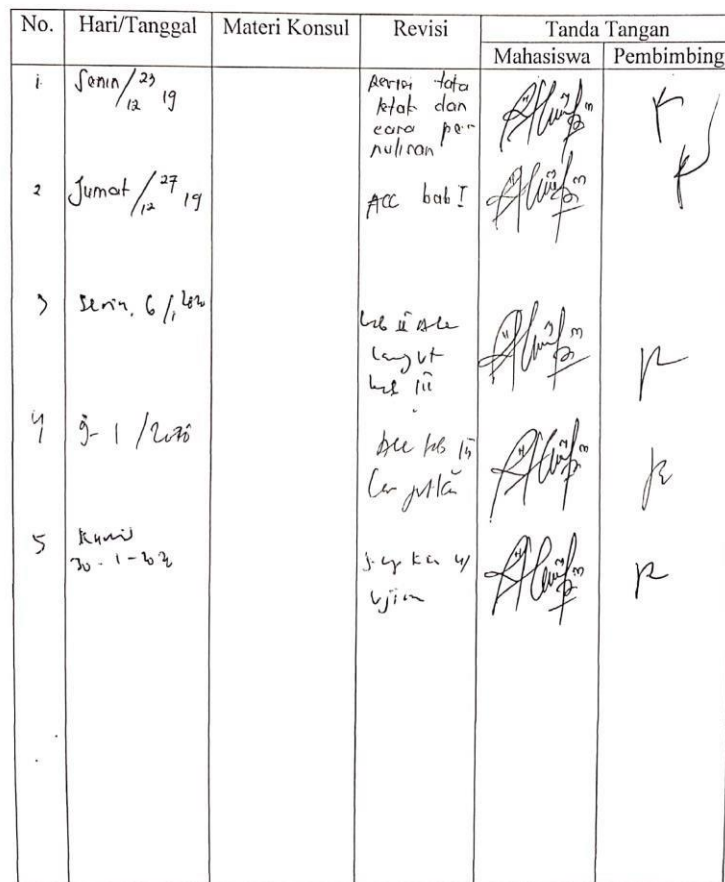 No. Hari/Tanggal Materi Konsul Revisi Tanda Tangan
Mahasiswa Pembimbing
1 Senin/23 12 19 Revisi tata
letak dan
cara pe-
nulisan
2 Jumat/27 12 19 ACC bab I
3 Senin, 6/1 2020
bab II Acc
lanjut
bab III
4 9-1/2020 Acc bab III
lanjutkan
5 Kamis
30-1-2020 siapkan u/
ujian